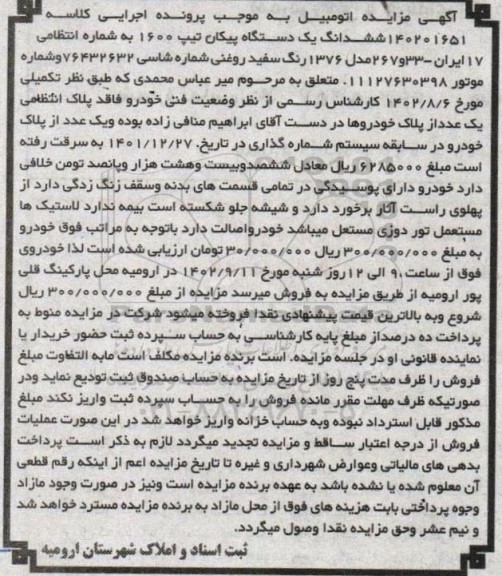 آگهی مزایده اتومبیل به موجب پرونده اجرایی کلاسه
۱۴۰۲۰۱۶۵۱ ششدانگ یک دستگاه پیکان تیپ ۱۶۰۰ به شماره انتظامی
۱۷ ایران -۳۳و۲۶۷ مدل ۱۳۷۶ رنگ سفید روغنی شماره شاسی ۷۶۴۳۲۶۳۲ وشماره
موتور ۱۱۱۲۷۶۳۰۳۹۸. متعلق به مرحوم میر عباس محمدی که طبق نظر تکمیلی
مورخ ۱۴۰۲/۸/۶ کارشناس رسمی از نظر وضعیت فنی خودرو فاقد پلاک انتظامی
یک عدداز پلاک خودروها در دست آقای ابراهیم منافی زاده بوده ویک عدد از پلاک
خودرو در سابقه سیستم شماره گذاری در تاریخ. ۱۴۰۱/۱۲/۲۷ به سرقت رفته
است مبلغ ۶۲۸۵۰۰۰ ریال معادل ششصدوبیست وهشت هزار وپانصد تومن خلافی
دارد خودرو دارای پوسیدگی در تمامی قسمت های بدنه وسقف زنگ زدگی دارد از
پهلوی راست آثار برخورد دارد و شیشه جلو شکسته است بیمه ندارد لاستیک ها
مستعمل تور دوزی مستعل میباشد خودرواصالت دارد باتوجه به مراتب فوق خودرو
به مبلغ ۳۰۰/۰۰۰/۰۰۰ ریال ۳۰/۰۰۰/۰۰۰ تومان ارزیابی شده است لذا خودروی
فوق از ساعت ۹۰ الی ۱۲ روز شنبه مورخ ۱۴۰۲/۹/۱۱ در ارومیه محل پارکینگ قلی
پور ارومیه از طریق مزایده به فروش میرسد مزایده از مبلغ ۳۰۰/۰۰۰/۰۰۰ ریال
شروع وبه بالاترین قیمت پیشنهادی نقدا فروخته میشود شرکت در مزایده منوط به
پرداخت ده درصداز مبلغ پایه کارشناسی به حساب سپرده ثبت حضور خریدار یا
نماینده قانونی او در جلسه مزایده. است برنده مزایده مکلف است مابه التفاوت مبلغ
فروش را ظرف مدت پنج روز از تاریخ مزایده به حساب صندوق ثبت تودیع نماید ودر
صورتیکه ظرف مهلت مقرر مانده فروش را به حساب سپرده ثبت واریز نکند مبلغ
مذکور قابل استرداد نبوده وبه حساب خزانه واریز خواهد شد در این صورت عملیات
فروش از درجه اعتبار ساقط و مزایده تجدید میگردد لازم به ذکر است پرداخت
بدهی های مالیاتی وعوارض شهرداری و غیره تا تاریخ مزایده اعم از اینکه رقم قطعی
آن معلوم شده یا نشده باشد به عهده برنده مزایده است ونیز در صورت وجود مازاد
وجوه پرداختی بابت هزینه های فوق از محل مازاد به برنده مزایده مسترد خواهد شد
و نیم عشر وحق مزایده نقدا وصول میگردد.
ثبت اسناد و املاک شهرستان ارومیه